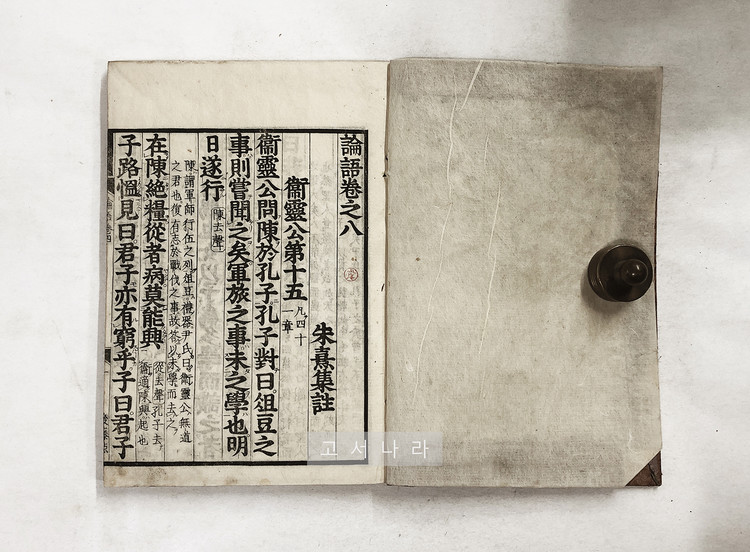 論語卷之八
朱熹集註
衞靈公第十五
凡四十
一章
衞靈公問陳於孔子孔子對曰俎豆之
事則嘗聞之矣軍旅之事未之學也明
日遂行
陳去聲
陳謂軍師行伍之列俎豆禮器尹氏曰衞靈公無道
之君也復有志於戰伐之事故答以未學而去之
在陳絶糧從者病莫能興
從去聲孔子去
衞適陳興起也
子路慍見曰君子亦有窮乎子曰君子
고서나라